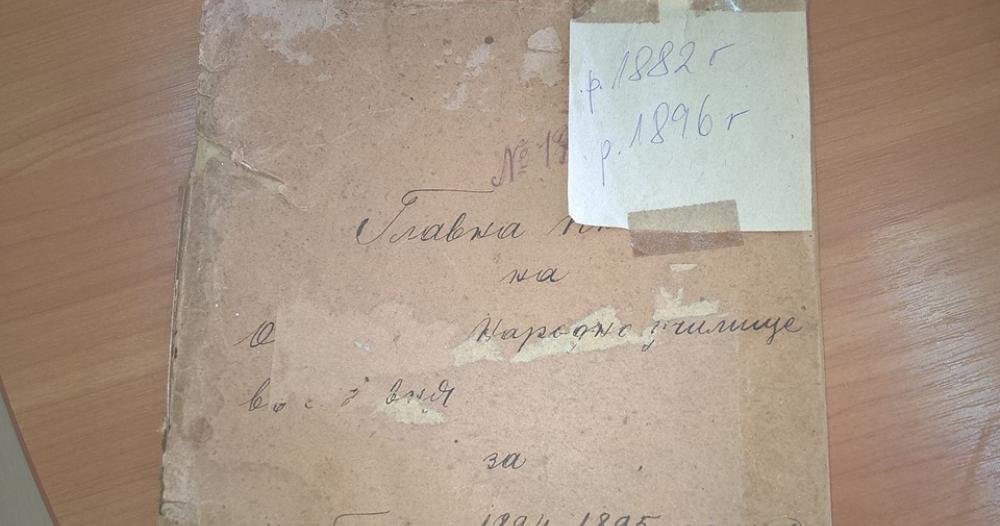 р. 1882 г
р. 1896 г
№ 13
Главна
на
О Народно училище
за
1894 1895